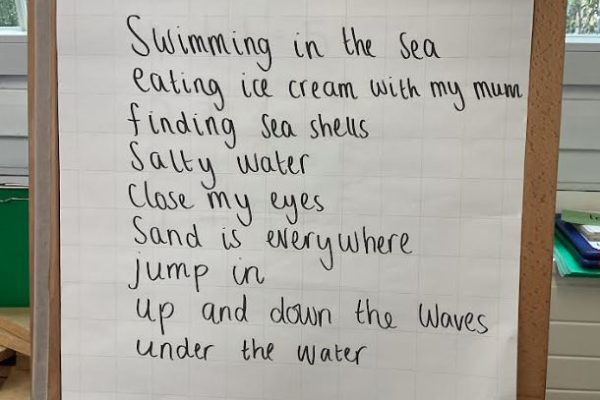 Swimming in the sea
eating ice cream with my mum
finding sea shells
Salty water
Close my eyes
Sand is everywhere
jump in
up and down the waves
under the water